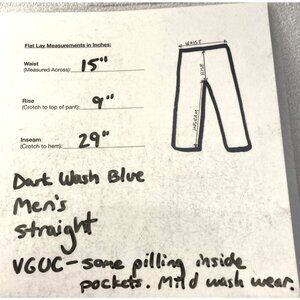 Flat Lay Measurements in Inches:
Waist
(Measured Across): 15"
Rise
(Crotch to top of pant): 9"
Inseam
(Crotch to hem): 29"
WAIST
RISE
INSEAM
Dark Wash Blue
Men's
Straight
VGUC - some pilling inside
pockets. Mild wash wear.